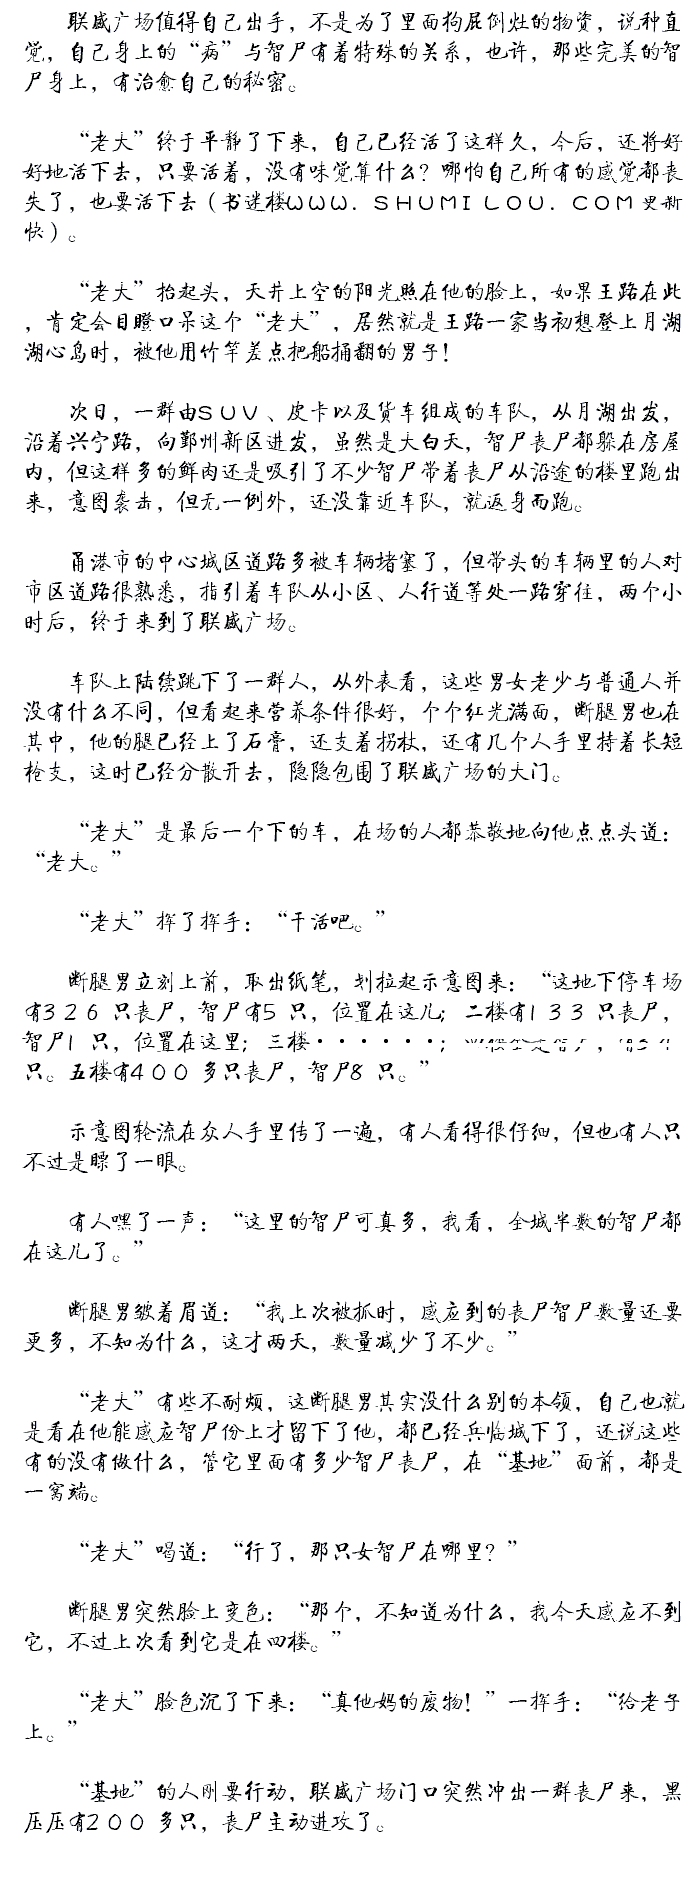 联盛广场值得自己出手，不是为了里面拘屁倒灶的物资，说种直
觉，自己身上的“病”与智尸有着特殊的关系，也许，那些完美的智
尸身上，有治愈自己的秘密。
“老大”终于平静了下来，自己已经活了这样久，今后，还将好
好地活下去，只要活着，没有味觉算什么？哪怕自己所有的感觉都丧
失了，也要活下去（书迷楼ＷＷＷ．ＳＨＵＭＩＬＯＵ．ＣＯＭ更新
快）。
“老大”抬起头，天井上空的阳光照在他的脸上，如果王路在此
，肯定会目瞪口呆这个“老大”，居然就是王路一家当初想登上月湖
湖心岛时，被他用竹竿差点把船捅翻的男子！
次日，一群由ＳＵＶ、皮卡以及货车组成的车队，从月湖出发，
沿着兴宁路，向鄞州新区进发，虽然是大白天，智尸丧尸都躲在房屋
内，但这样多的鲜肉还是吸引了不少智尸带着丧尸从沿途的楼里跑出
来，意图袭击，但无一例外，还没靠近车队，就返身而跑。
甬港市的中心城区道路多被车辆堵塞了，但带头的车辆里的人对
市区道路很熟悉，指引着车队从小区、人行道等处一路穿往，两个小
时后，终于来到了联盛广场。
车队上陆续跳下了一群人，从外表看，这些男女老少与普通人并
没有什么不同，但看起来营养条件很好，个个红光满面，断腿男也在
其中，他的腿已经上了石膏，还支着拐杖，还有几个人手里持着长短
枪支，这时已经分散开去，隐隐包围了联盛广场的大门。
“老大”是最后一个下的车，在场的人都恭敬地向他点点头道：
“老大。”
“老大”挥了挥手：“干活吧。”
断腿男立刻上前，取出纸笔，划拉起示意图来：“这地下停车场
有３２６只丧尸，智尸有５只，位置在这儿；二楼有１３３只丧尸，
智尸１只，位置在这里；三楼······；
只。五楼有４００多只丧尸，智尸８只。”
示意图轮流在众人手里传了一遍，有人看得很仔细，但也有人只
不过是瞟了一眼。
有人嘿了一声：“这里的智尸可真多，我看，全城半数的智尸都
在这儿了。”
断腿男皱着眉道：“我上次被抓时，感应到的丧尸智尸数量还要
更多，不知为什么，这才两天，数量减少了不少。”
“老大”有些不耐烦，这断腿男其实没什么别的本领，自己也就
是看在他能感应智尸份上才留下了他，都已经兵临城下了，还说这些
有的没有做什么，管它里面有多少智尸丧尸，在“基地”面前，都是
一窝端。
“老大”喝道：“行了，那只女智尸在哪里？”
断腿男突然脸上变色：“那个，不知道为什么，我今天感应不到
它，不过上次看到它是在四楼。”
“老大”脸色沉了下来：“真他妈的废物！”一挥手：“给老子
上。”
“基地”的人刚要行动，联盛广场门口突然冲出一群丧尸来，黑
压压有２００多只，丧尸主动进攻了。